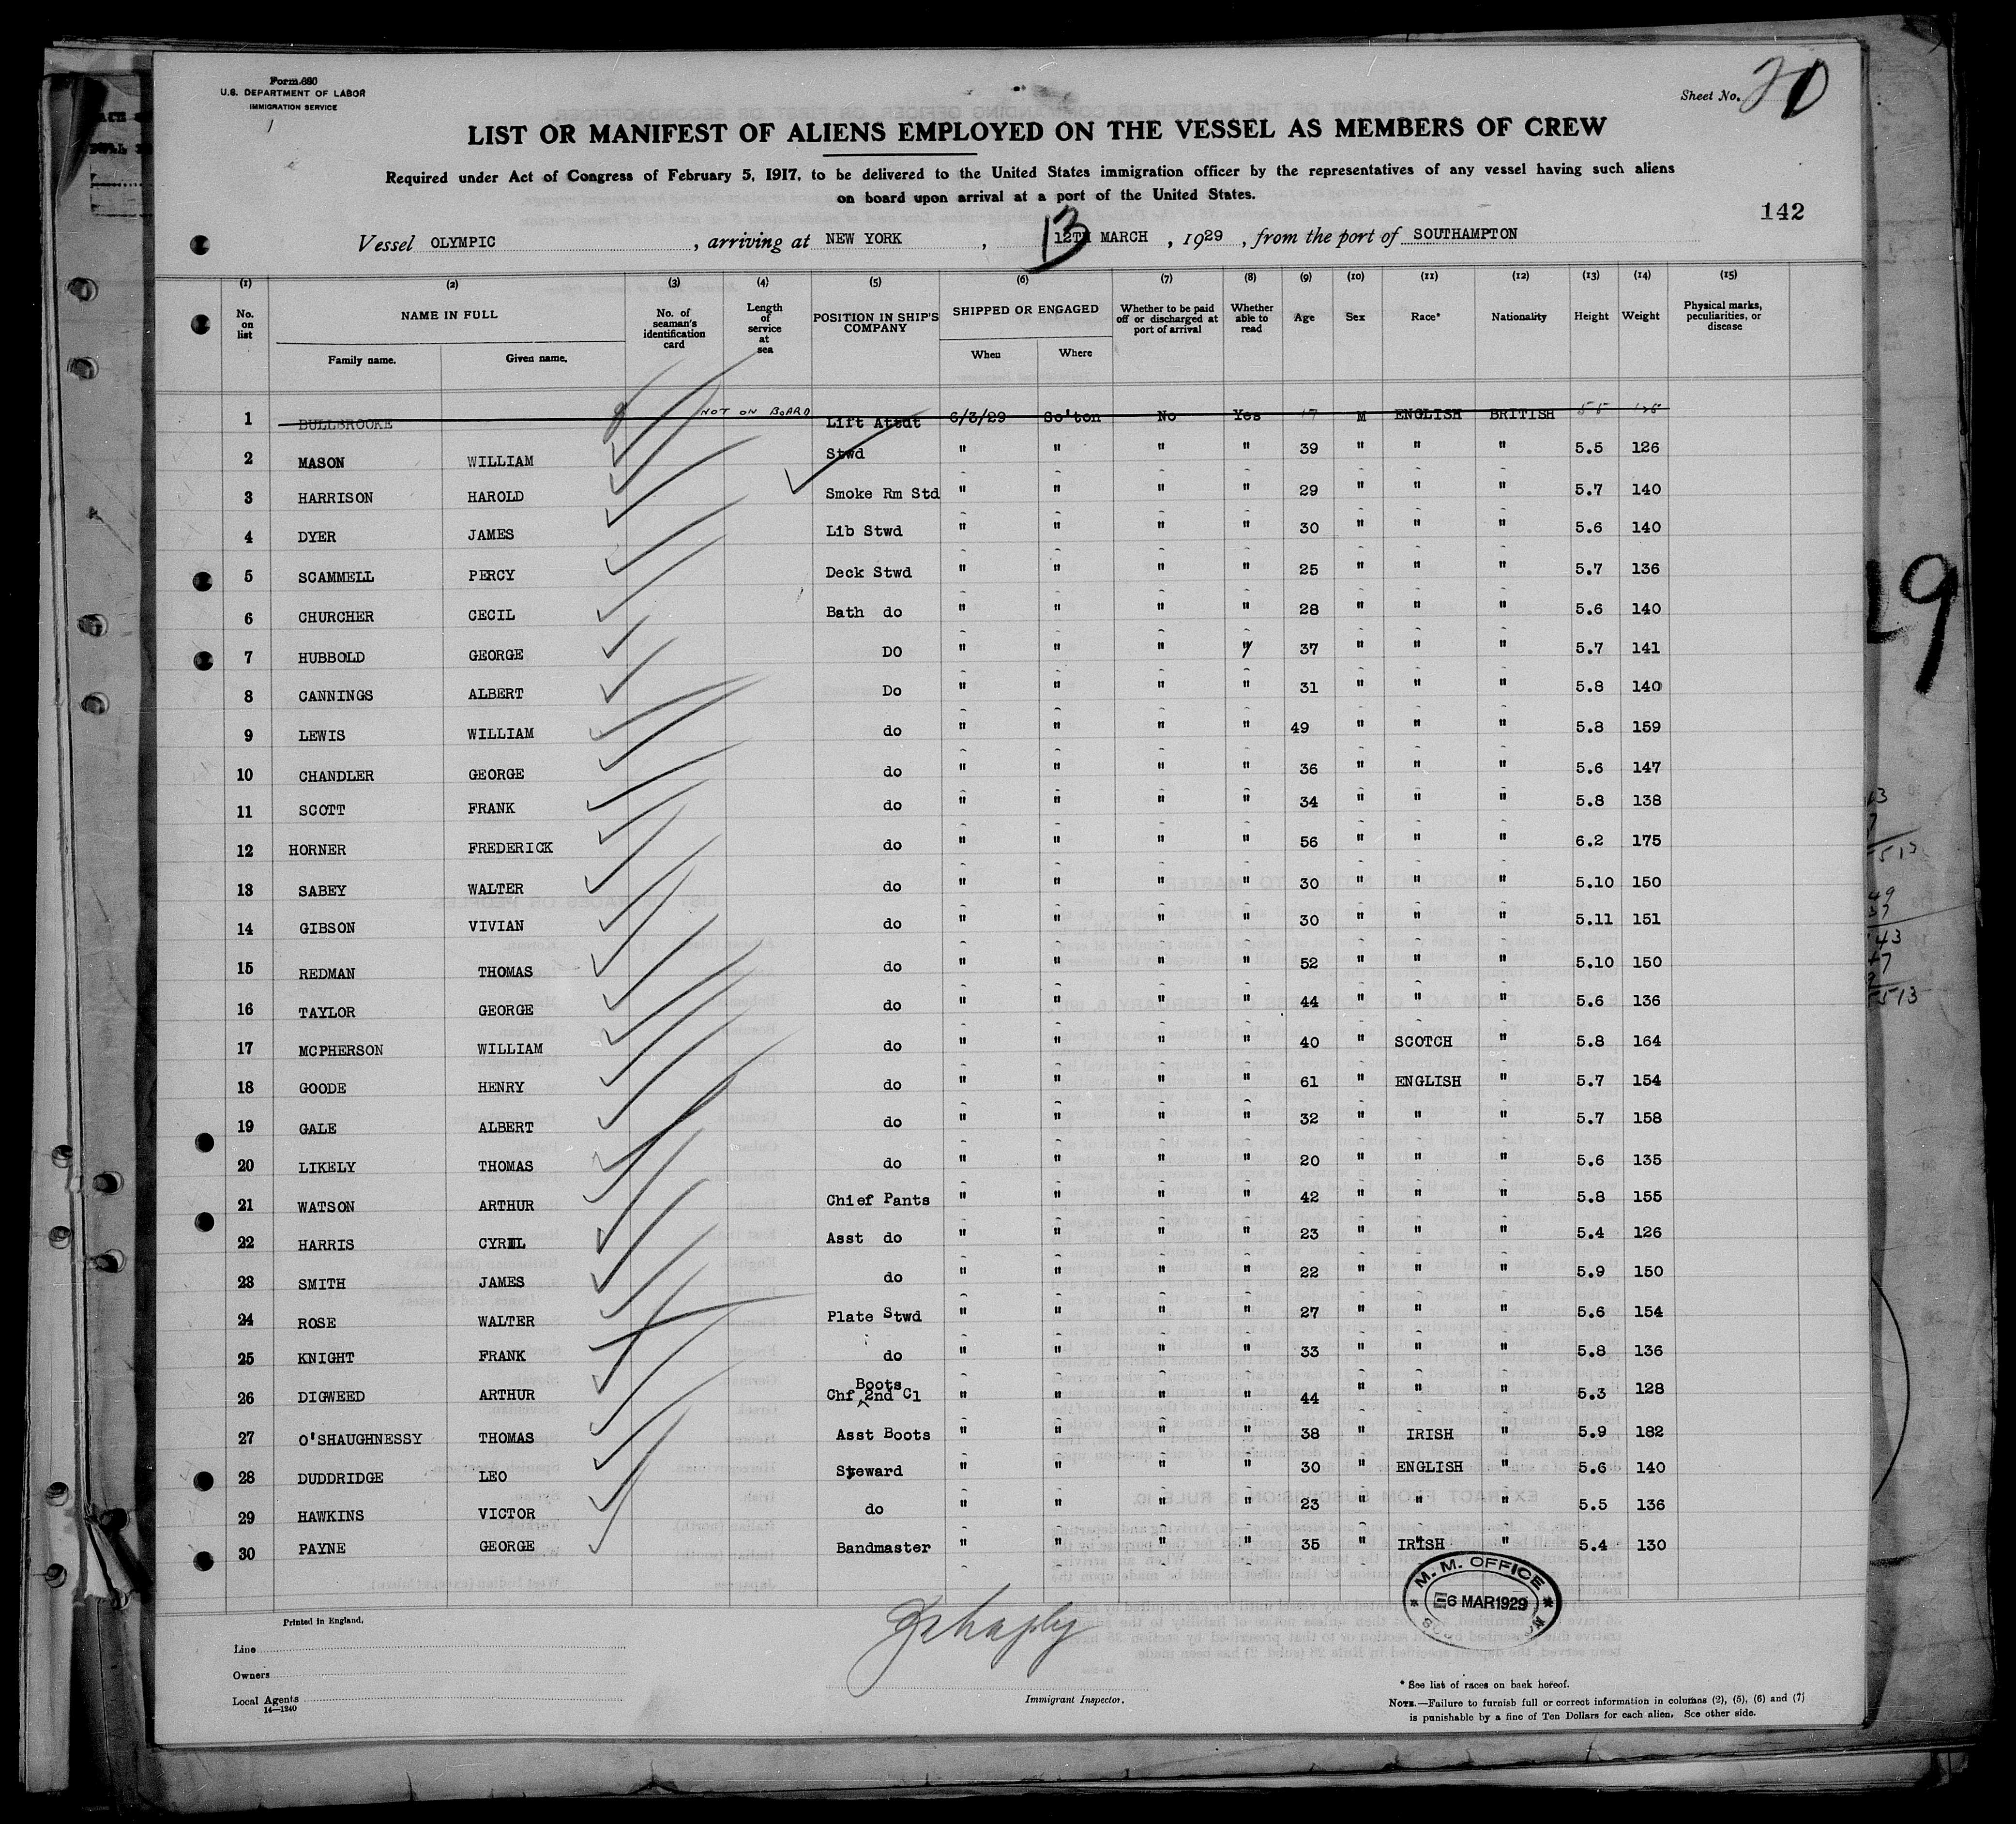 Form 680
U.S. DEPARTMENT OF LABOR
IMMIGRATION SERVICE
Sheet No.
LIST OR MANIFEST OF ALIENS EMPLOYED ON THE VESSEL AS MEMBERS OF CREW
Required under Act of Congress of February 5, 1917, to be delivered to the United States immigration officer by the representatives of any vessel having such aliens
on board upon arrival at a port of the United States.
142
Vessel OLYMPIC, arriving at NEW YORK, 13 12TH MARCH, 1929, from the port of SOUTHAMPTON
(1) (2) (3) (4) (5) (6) (7) (8) (9) (10) (11) (12) (13) (14) (15)
No. on list NAME IN FULL Family name. Given name. No. of seaman's identification card Length of service at sea POSITION IN SHIP'S COMPANY SHIPPED OR ENGAGED When Where Whether to be paid off or discharged at port of arrival Whether able to read Age Sex Race* Nationality Height Weight Physical marks, peculiarities, or disease
1 BULLBROOKE NOT ON BOARD Lift Attdt 6/3/29 So'ton No Yes 17 M ENGLISH BRITISH 5 5
2 MASON WILLIAM Stwd " " " " 39 " " " 5.5 126
3 HARRISON HAROLD Smoke Rm Std " " " " 29 " " " 5.7 140
4 DYER JAMES Lib Stwd " " " " 30 " " " 5.6 140
5 SCAMMELL PERCY Deck Stwd " " " " 25 " " " 5.7 136
6 CHURCHER CECIL Bath do " " " " 28 " " " 5.6 140
7 HUBBOLD GEORGE DO " " " " 37 " " " 5.7 141
8 CANNINGS ALBERT Do " " " " 31 " " " 5.8 140
9 LEWIS WILLIAM do " " " " 49 " " " 5.8 159
10 CHANDLER GEORGE do " " " " 36 " " " 5.6 147
11 SCOTT FRANK do " " " " 34 " " " 5.8 138
12 HORNER FREDERICK do " " " " 56 " " " 6.2 175
13 SABEY WALTER do " " " " 30 " " " 5.10 150
14 GIBSON VIVIAN do " " " " 30 " " " 5.11 151
15 REDMAN THOMAS do " " " " 52 " " " 5.10 150
16 TAYLOR GEORGE do " " " " 44 " " " 5.6 136
17 MCPHERSON WILLIAM do " " " " 40 " SCOTCH " 5.8 164
18 GOODE HENRY do " " " " 61 " ENGLISH " 5.7 154
19 GALE ALBERT do " " " " 32 " " " 5.7 158
20 LIKELY THOMAS do " " " " 20 " " " 5.6 135
21 WATSON ARTHUR Chief Pants " " " " 42 " " " 5.8 155
22 HARRIS CYRIL Asst do " " " " 23 " " " 5.4 126
23 SMITH JAMES do " " " " 22 " " " 5.9 150
24 ROSE WALTER Plate Stwd " " " " 27 " " " 5.6 154
25 KNIGHT FRANK do " " " " 33 " " " 5.8 136
26 DIGWEED ARTHUR Chf Boots 2nd Cl " " " " 44 " " " 5.3 128
27 O'SHAUGHNESSY THOMAS Asst Boots " " " " 38 " IRISH " 5.9 182
28 DUDDRIDGE LEO Steward " " " " 30 " ENGLISH " 5.6 140
29 HAWKINS VICTOR do " " " " 23 " " " 5.5 136
30 PAYNE GEORGE Bandmaster " " " " 35 " IRISH " 5.4 130
M. M. OFFICE
6 MAR 1929
Printed in England.
Line
Owners
Local Agents
14—1240
Immigrant Inspector.
* See list of races on back hereof.
NOTE.—Failure to furnish full or correct information in columns (2), (5), (6) and (7)
is punishable by a fine of Ten Dollars for each alien. See other side.